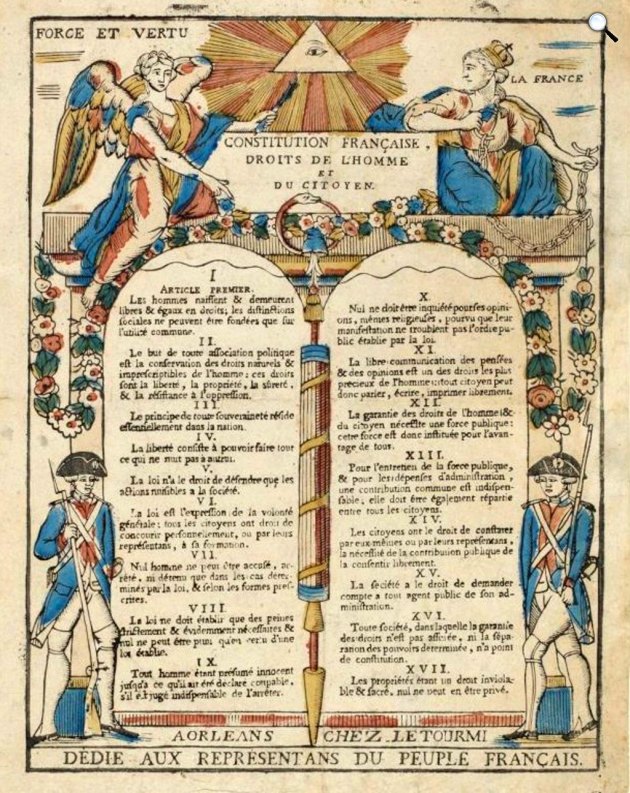 FORCE ET VERTU
LA FRANCE
CONSTITUTION FRANÇAISE,
DROITS DE L'HOMME
ET
DU CITOYEN.
I
ARTICLE PREMIER.
Les hommes naiſſent & demeurent
libres & égaux en droits; les diſtinctions
ſociales ne peuvent être fondées que ſur
l'utilité commune.
II.
Le but de toute aſſociation politique
eſt la conſervation des droits naturels &
impreſcriptibles de l'homme: ces droits
ſont la liberté, la propriété, la ſûreté,
& la réſiſtance à l'oppreſſion.
III
Le principe de toute ſouveraineté réſide
eſſentiellement dans la nation.
IV.
La liberté conſiſte à pouvoir faire tout
ce qui ne nuit pas à autrui.
V.
La loi n'a le droit de défendre que les
actions nuiſibles a la ſociété.
VI.
La loi eſt l'expreſſion de la volonté
générale; tous les citoyens ont droit de
concourir perſonnellement, ou par leurs
repréſentans, à ſa formation.
VII.
Nul homme ne peut être accuſé, ar-
rêté, ni détenu que dans les cas deter-
minés par la loi, & ſelon les formes preſ-
crites.
VIII.
La loi ne doit établir que des peines
ſtrictement & évidemment néceſſaires &
nul ne peut être puni qu'en vertu d'une
loi établie.
IX.
Tout homme étant préſumé innocent
juſqu'a ce qu'il ait été déclaré coupable,
s'il eſt jugé indiſpenſable de l'arrêter.
X.
Nul ne doit être inquiété pour ſes opini-
ons, mêmes religieuſes, pourvu que leur
manifeſtation ne troublent pas l'ordre pu-
blic établie par la loi.
XI.
La libre communication des penſées
& des opinions eſt un des droits les plus
précieux de l'homme: tout citoyen peut
donc parler, écrire, imprimer librement.
XII.
La garantie des droits de l'homme &
du citoyen néceſſite une force publique:
cette force eſt donc inſtituée pour l'avan-
tage de tous.
XIII.
Pour l'entretien de la force publique,
& pour les dépenſes d'adminiſtration,
une contribution commune eſt indiſpen-
ſable; elle doit être également répartie
entre tous les citoyens.
XIV.
Les citoyens ont le droit de conſtater
par eux-mêmes ou par leurs repréſentans,
la néceſſité de la contribution publique de
la conſentir librement.
XV.
La ſociété a le droit de demander
compte a tout agent public de ſon ad-
miniſtration.
XVI.
Toute ſociété, dans laquelle la garantie
des droits n'eſt pas aſſurée, ni la ſépa-
ration des pouvoirs determinée, n'a point
de conſtitution.
XVII.
Les propriétés étant un droit inviola-
ble & ſacré, nul ne peut en être privé.
A ORLEANS CHEZ LETOURMI
DÉDIE AUX REPRÉSENTANS DU PEUPLE FRANÇAIS.